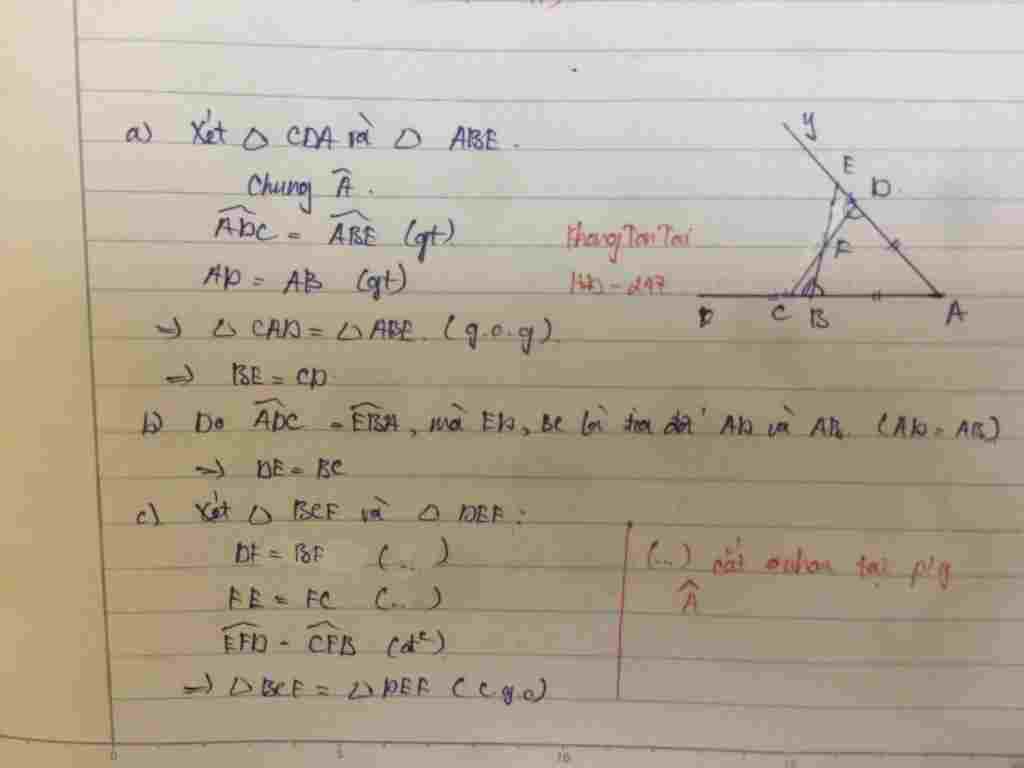 a) Xét △ CDA và △ ABE.
Chung Â.
ADC = ABE (gt)
AD = AB (gt)
=> △ CAD = △ ABE. (g.c.g)
=> BE = CD
b) Do ADC = EBA, mà ED, BC là tia đối AD và AB. (AD = AB)
=> DE = BC
c) Xét △ BCF và △ DEF:
DF = BF (...)
FE = FC (...)
EFD = CFB (đ²)
=> △ BCF = △ DEF (c.g.c)
KhongTonTai
- 247
(...) cắt nhau tại p/g
Â
y
E
D
F
C
B
A
0 5 10 15